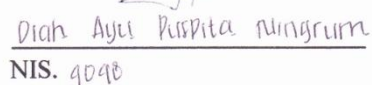 Diah Ayu Puspita Ningrum
NIS. 9090